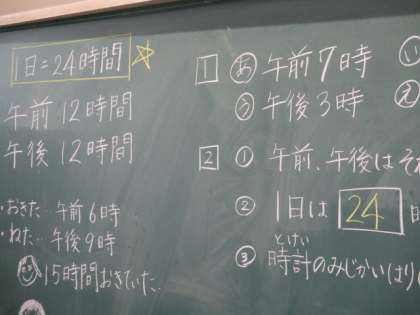 1日=24時間
午前 12時間
午後 12時間
・おきた…午前6時
・ねた…午後9時
15時間おきていた。
1 あ 午前7時
う 午後3時
2 ① 午前、午後はそ
② 1日は 24
③ 時計のみじかいはり
とけい